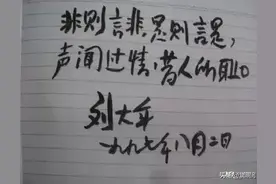 非则言非，是则言是，
声闻过情，昔人所耻。
刘大年
一九九七年八月二日